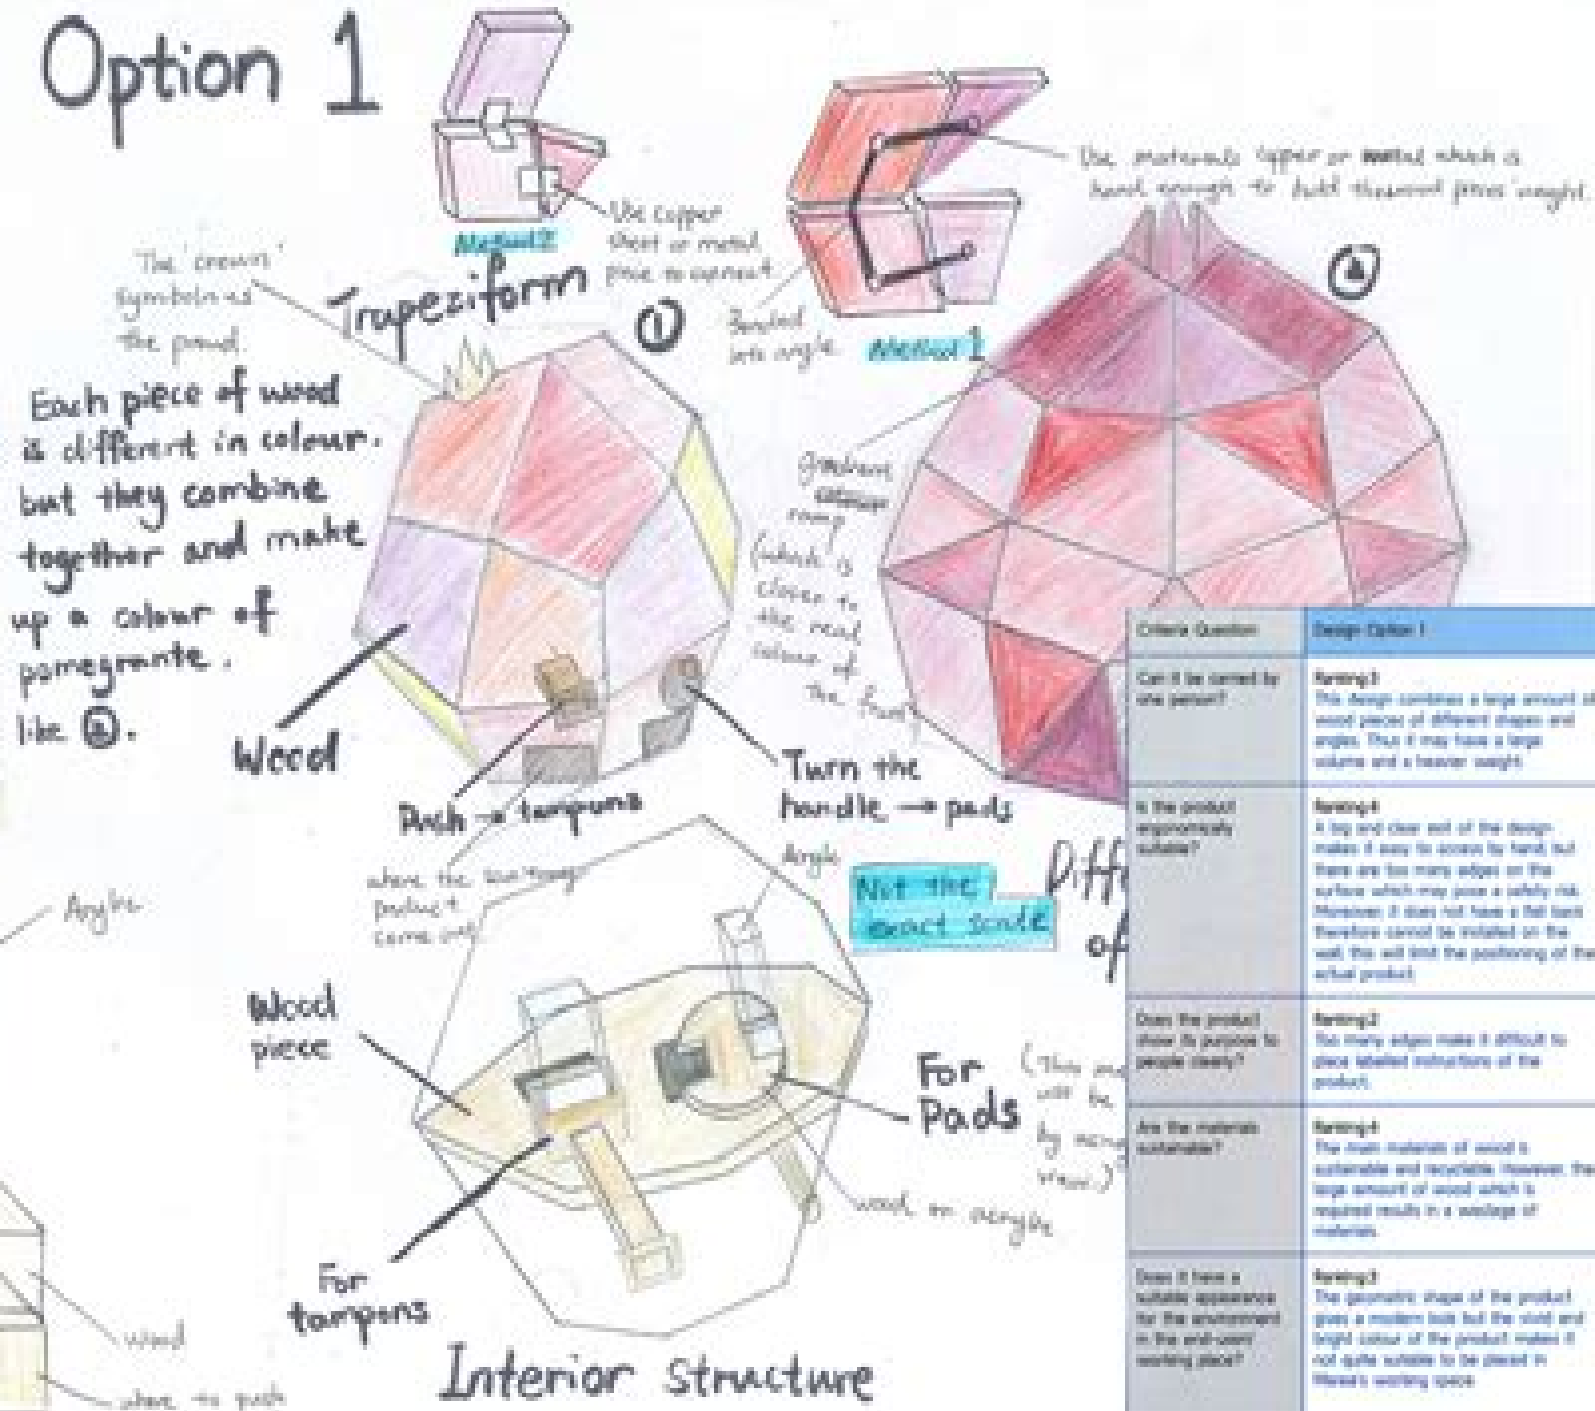 Option 1
Method 2
Use copper
sheet or metal
piece to connect
Use materials copper or metal which is
hard enough to hold the wood pieces' weight.
Bended
into angle
Method 1
The 'crown'
symbolises
the proud.
Trapeziform
①
②
Each piece of wood
is different in colour.
but they combine
together and make
up a colour of
pomegrante.
like ②.
gradient
ramp
(which is
closer to
the real
colour of
the fruit)
Wood
Push → tampons
Turn the
handle → pads
where the
product
come out
Not the
exact scale
Diff
of
Wood
piece
For
Pads
(This
will be
by
view.)
wood or acrylic
For
tampons
Interior structure
wood
where to push
Criteria Question
Design Option 1
Can it be carried by
one person?
Ranking:3
This design combines a large amount of
wood pieces of different shapes and
angles. Thus it may have a large
volume and a heavier weight.
Is the product
ergonomically
suitable?
Ranking:4
A big and clear exit of the design
makes it easy to access by hand, but
there are too many edges on the
surface which may pose a safety risk.
Moreover, it does not have a flat back
therefore cannot be installed on the
wall, this will limit the positioning of the
actual product.
Does the product
show its purpose to
people clearly?
Ranking:2
Too many edges make it difficult to
place labelled instructions of the
product.
Are the materials
sustainable?
Ranking:4
The main materials of wood is
sustainable and recyclable. However, the
large amount of wood which is
required results in a wastage of
materials.
Does it have a
suitable appearance
for the environment
in the end-users'
working place?
Ranking:3
The geometric shape of the product
gives a modern look but the vivid and
bright colour of the product makes it
not quite suitable to be placed in
working space